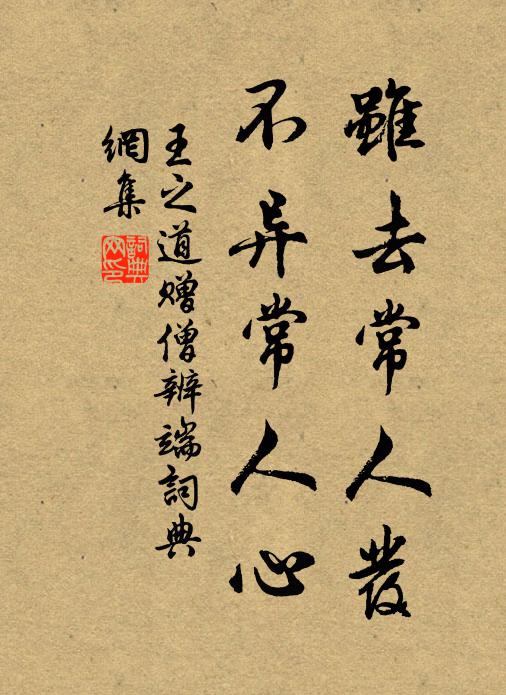 雖去常人發
不异常人心
王之道贈僧辨端詞典
網集
詞典
网印